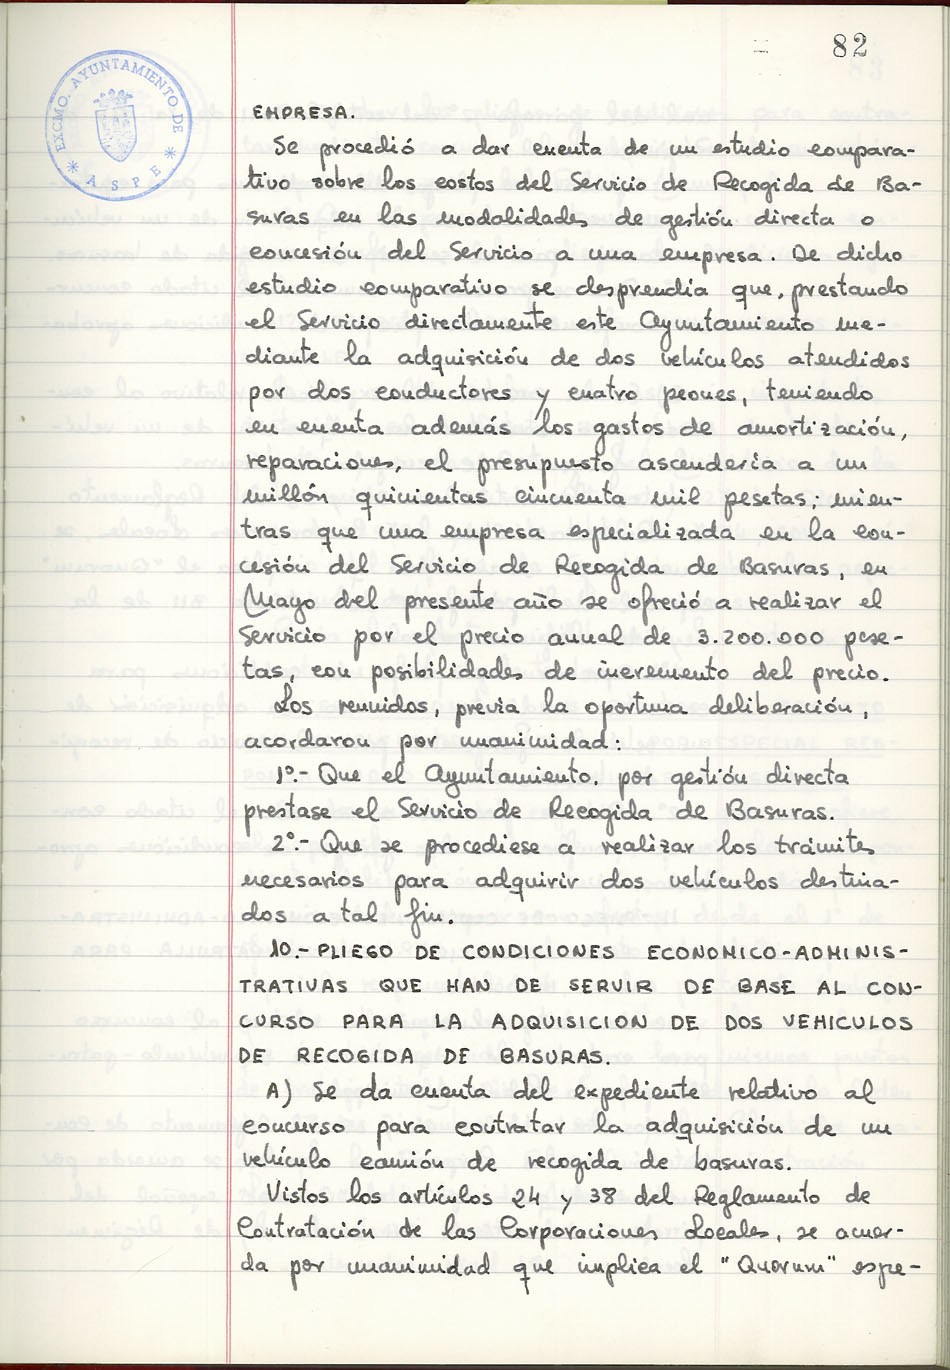 82
EXCMO. AYUNTAMIENTO DE
* ASPE *
EMPRESA.
Se procedió a dar cuenta de un estudio compara-
tivo sobre los costos del Servicio de Recogida de Ba-
suras en las modalidades de gestión directa o
concesión del Servicio a una empresa. De dicho
estudio comparativo se desprendia que, prestando
el Servicio directamente este Ayuntamiento me-
diante la adquisición de dos vehículos atendidos
por dos conductores y cuatro peones, teniendo
en cuenta además los gastos de amortización,
reparaciones, el presupuesto ascendería a un
millón quinientas cincuenta mil pesetas; mien-
tras que una empresa especializada en la con-
cesión del Servicio de Recogida de Basuras, en
Mayo del presente año se ofreció a realizar el
Servicio por el precio anual de 3.200.000 pese-
tas, con posibilidades de incremento del precio.
Los reunidos, previa la oportuna deliberación,
acordaron por unanimidad:
1º.- Que el Ayuntamiento. por gestión directa
prestase el Servicio de Recogida de Basuras.
2º.- Que se procediese a realizar los trámites
necesarios para adquirir dos vehículos destina-
dos a tal fin.
10.- PLIEGO DE CONDICIONES ECONOMICO-ADMINIS-
TRATIVAS QUE HAN DE SERVIR DE BASE AL CON-
CURSO PARA LA ADQUISICION DE DOS VEHICULOS
DE RECOGIDA DE BASURAS.
A) Se da cuenta del expediente relativo al
concurso para contratar la adquisición de un
vehículo camión de recogida de basuras.
Vistos los artículos 24 y 38 del Reglamento de
Contratación de las Corporaciones Locales, se acuer-
da por unanimidad que implica el "Quorum" espe-